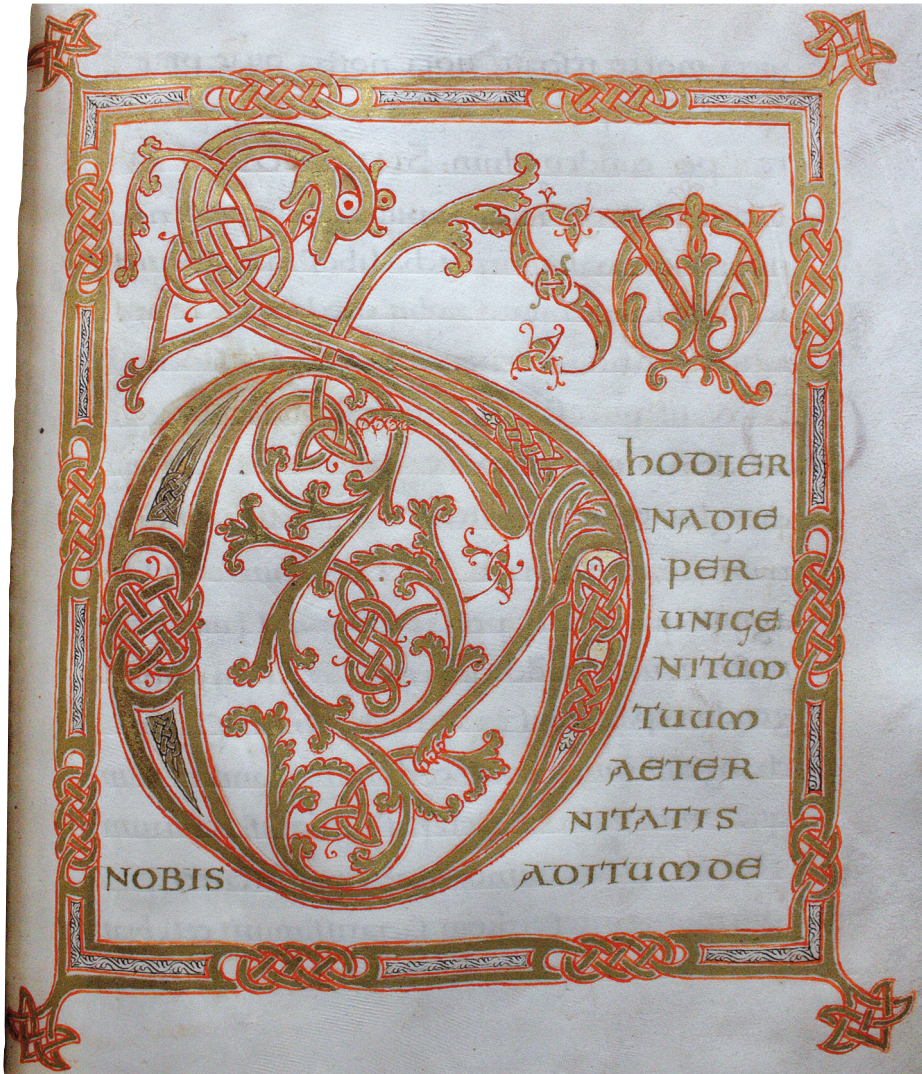 DS QUI
hODIER
NADIE
PER
UNIGE
NITUM
TUUM
AETER
NITATIS
NOBIS ADITUMDE